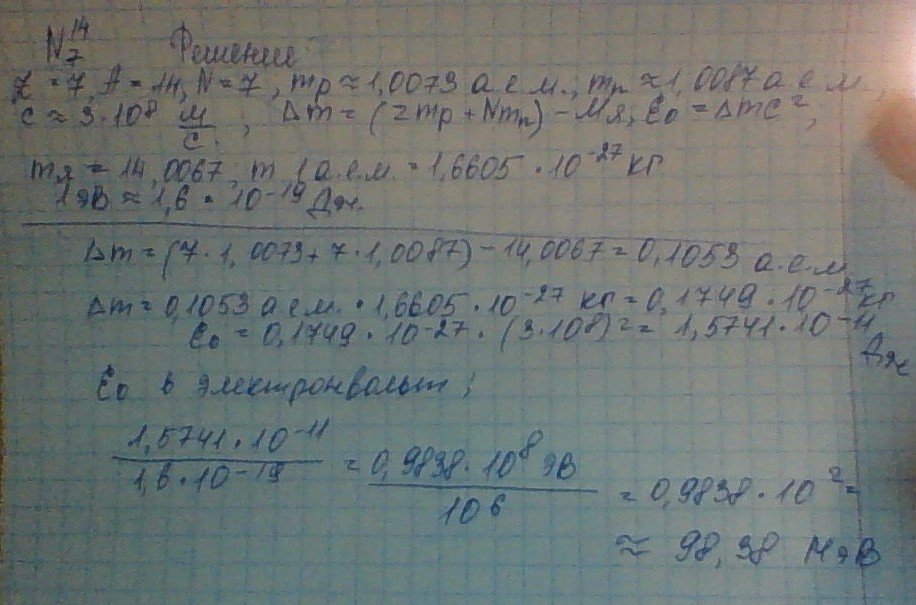 N₇¹⁴ Решение
Z = 7, A = 14, N = 7, mp ≈ 1,0073 а е м.; mn ≈ 1,0087 а е м.,
c ≈ 3·10⁸ м/с.; Δm = (Zmp + Nmn) − Mя; Ɛ₀ = Δmc²;
mя = 14,0067; m 1 а.е.м. = 1,6605·10⁻²⁷ кг
1 эВ ≈ 1,6·10⁻¹⁹ Дж.
Δm = (7·1,0073 + 7·1,0087) − 14,0067 = 0,1053 а.е.м
Δm = 0,1053 а е м.·1,6605·10⁻²⁷ кг = 0,1749·10⁻²⁷ кг
Ɛ₀ = 0,1749·10⁻²⁷·(3·10⁸)² = 1,5741·10⁻¹¹
Дж
Ɛ₀ в электронвольт;
1,5741·10⁻¹¹ / 1,6·10⁻¹⁹ = 0,9838·10⁸ эВ / 10⁶ = 0,9838·10² =
≈ 98,38 МэВ